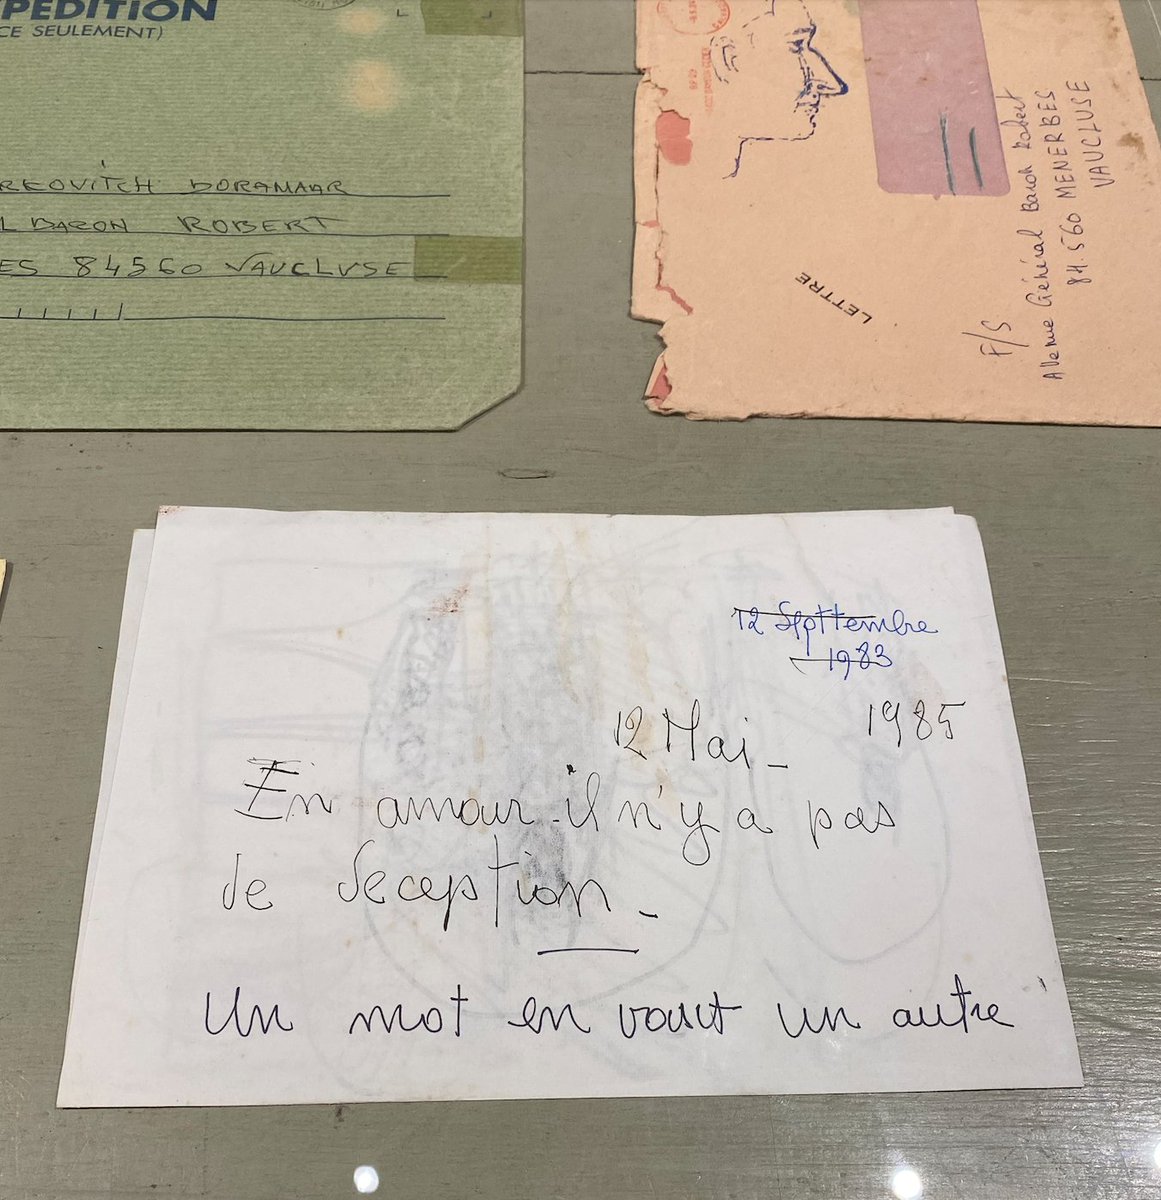 PÉDITION
CE SEULEMENT)
RKOVITCH DORAMAAR
L BARON ROBERT
ES 84560 VAUCLUSE
LETTRE
F/S
Avenue Général Baron Robert
84.560 MENERBES
VAUCLUSE
12 Septtembre
1983
12 Mai - 1985
En amour il n'y a pas
de deception -
Un mot en vaut un autre